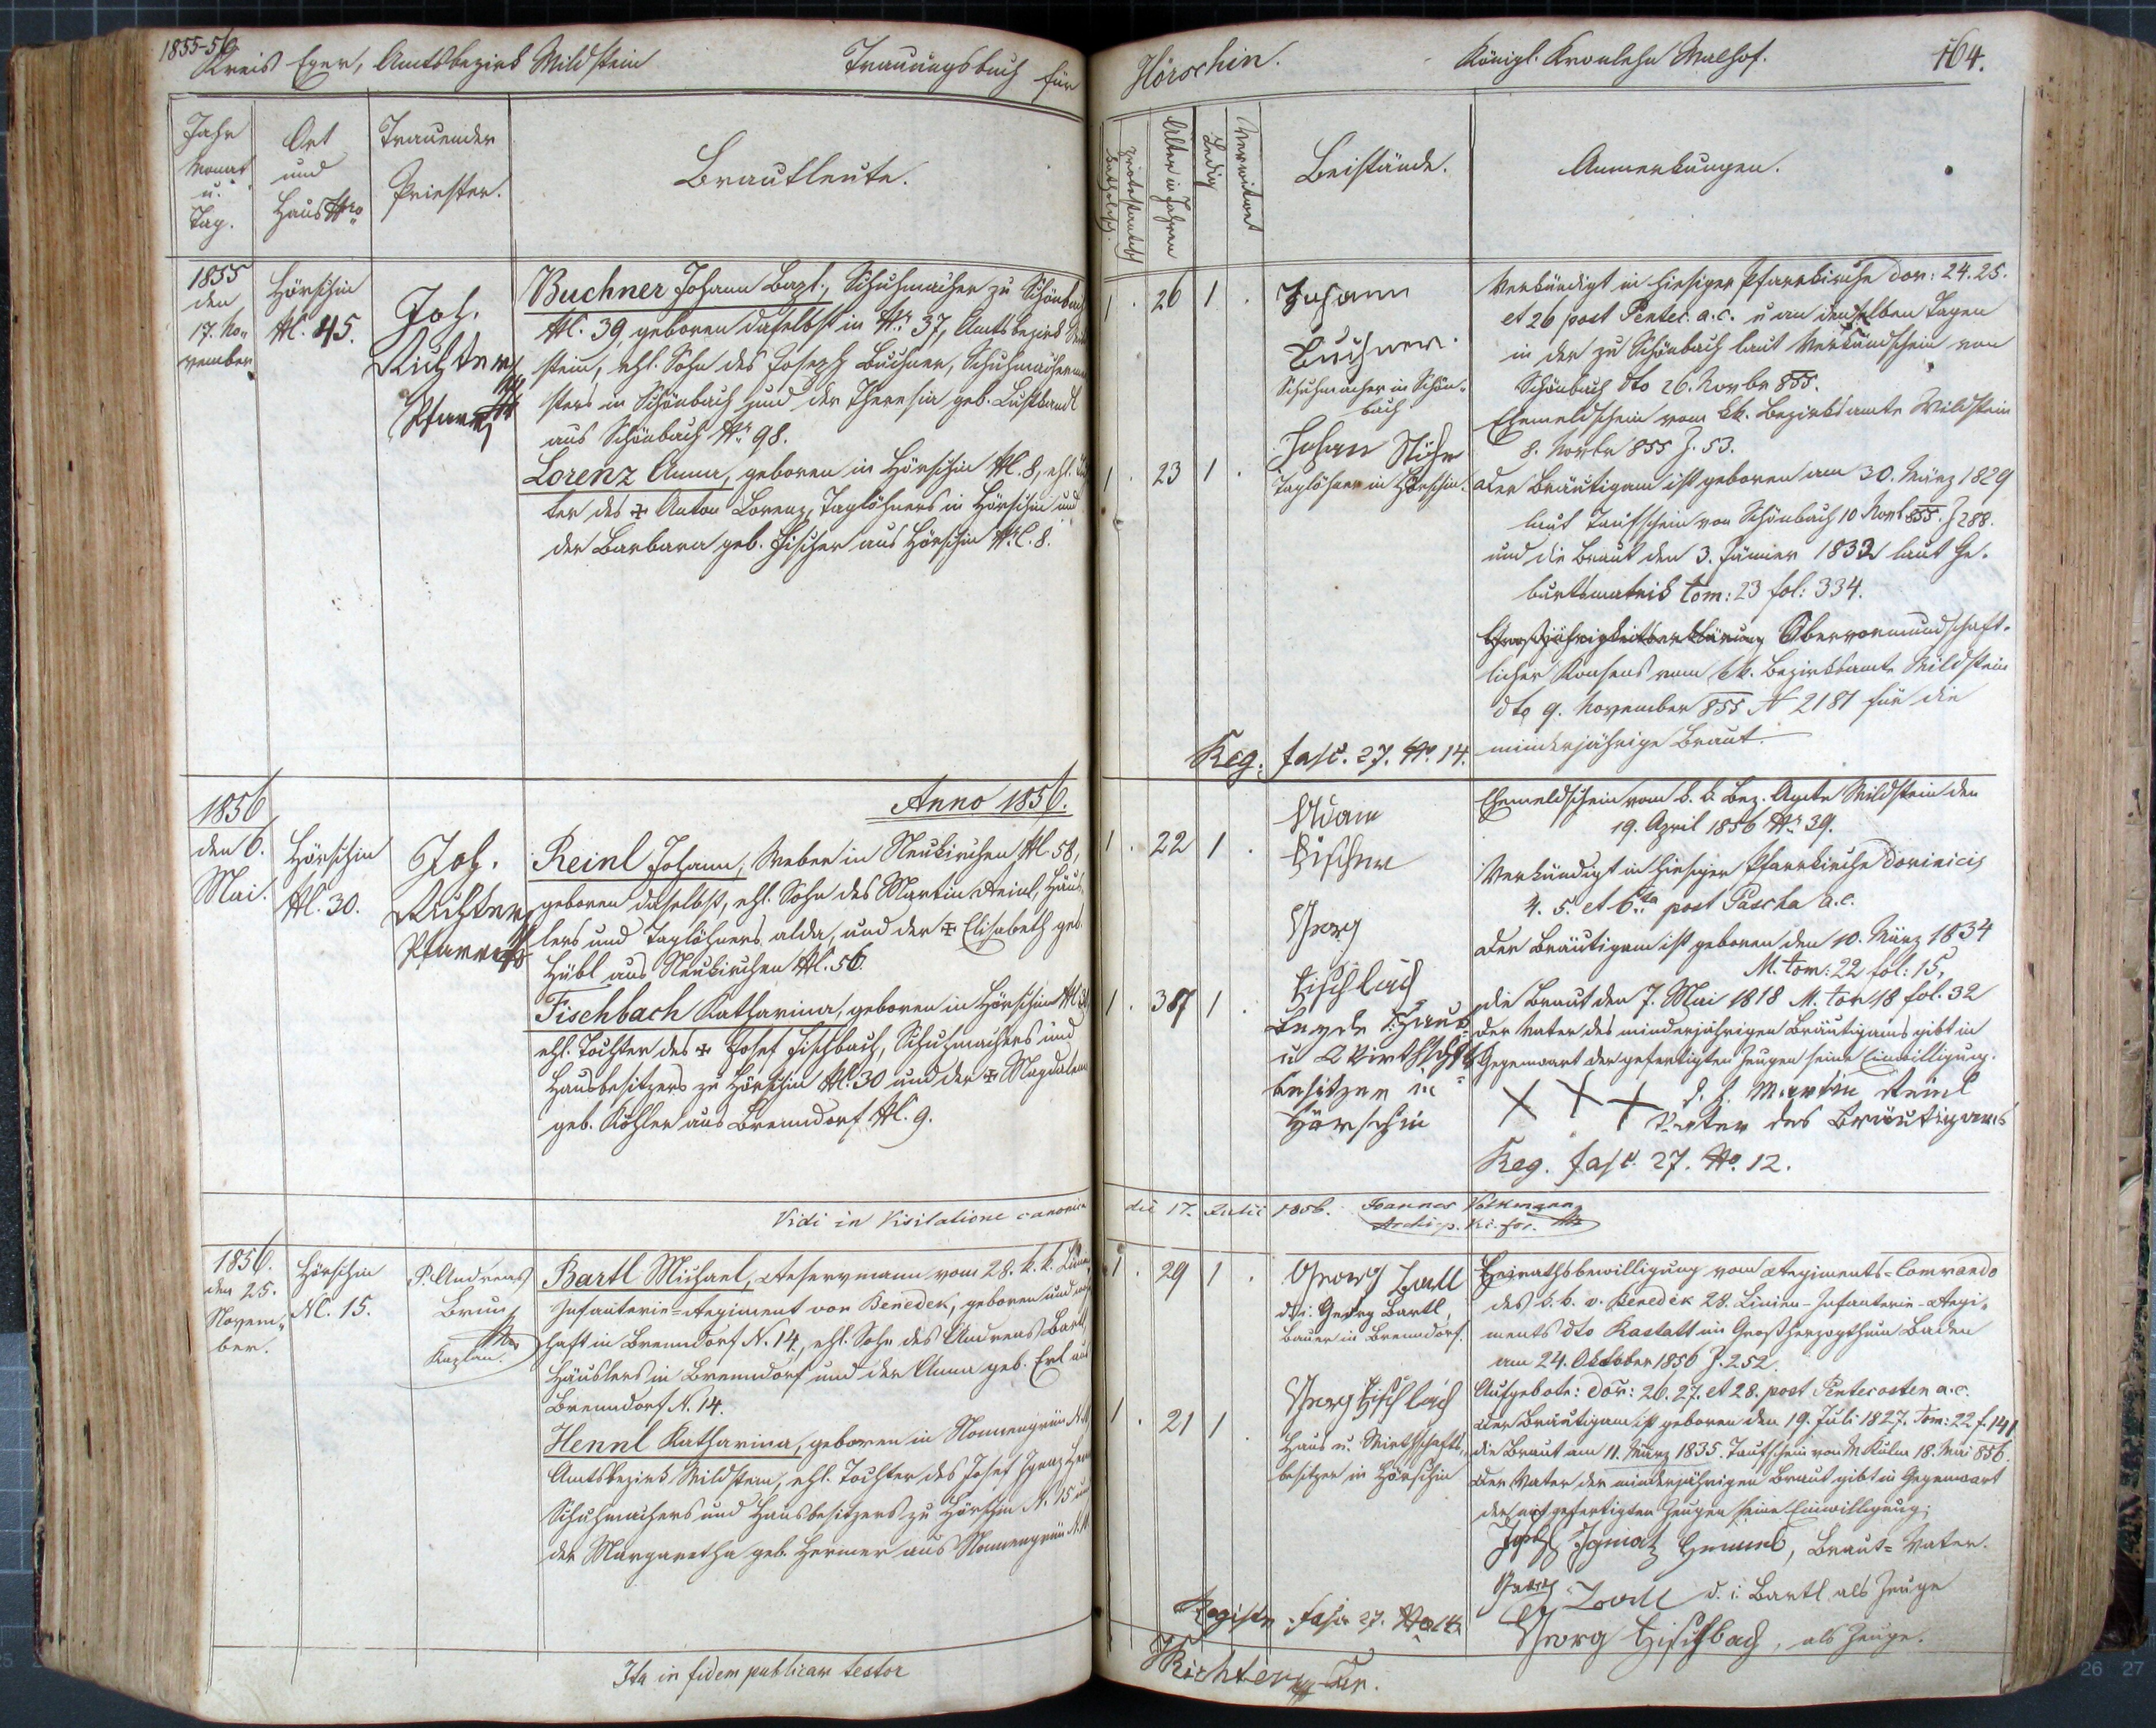 1855-56
Kreis Eger, Amtsbezirk Wildstein Trauungsbuch für
Jahr
Monat
u.
Tag.
Ort
und
Haus Nro
Trauender
Priester.
Brautleute.
1855
den
17. No-
vember
Hörschin
NC. 45.
Joh.
Richter
Pfarrer
Buchner Johann Bapt., Schuhmacher zu Schönbach
NC. 39, geboren daselbst in Nr. 37, Amtsbezirk
stein, ehl. Sohn des Joseph Buchner, Schuhmachermei
sters in Schönbach und der Theresia geb.
aus Schönbach Nr. 98.
Lorenz Anna, geboren in Hörschin NC. 8, ehl. Toch
ter des ✠ Anton Lorenz, Taglöhners in Hörschin und
der Barbara geb. Fischer aus Hörschin NC. 8.
Anno 1856.
1856
den 6.
Mai.
Hörschin
NC. 30.
Joh.
Richter
Pfarrer
Reinl Johann, Weber in Neukirchen NC. 58,
geboren daselbst, ehl. Sohn des Martin Reinl, Häus
lers und Taglöhners alda, und der ✠ Elisabeth geb.
Hübl aus Neukirchen NC. 56.
Fischbach Katharina, geboren in Hörschin NC. 30
ehl. Tochter des ✠ Josef Fischbach, Schuhmachers und
Hausbesitzers zu Hörschin NC. 30 und der ✠ Magdalena
geb. Köhler aus Bremdorf NC. 9.
Vidi in Visitatione canonica
1856.
den 25.
Novem-
ber.
Hörschin
NC. 15.
P. Andreas
Brum
Kaplan.
Bartl Michael, Reservmann vom 28. k. k. Linien
Infanterie-Regiment von Benedek, geboren und
haft in Bremdorf N. 14., ehl. Sohn des Andreas Bartl,
Häuslers in Bremdorf und der Anna geb. Erl aus
Bremdorf N. 14.
Hennl Katharina, geboren in Nonnengrün N. 11
Amtsbezirk Wildstein, ehl. Tochter des Josef Ignaz Hennl
Schuhmachers und Hausbesitzers zu Hörschin N. 15 und
der Margaretha geb. Hermer aus Nonnengrün N. 11
Ita in fidem publicam testor
Hörschin. Königl. Kronlehn Malhof. 164.
Katholisch
Protestantisch
Alter in Jahren
Ledig
Verwitwet
Beistände.
Anmerkungen.
1 . 26 1 .
1 . 23 1 .
Johann
Buchner.
Schuhmacher in Schön-
bach
Johann Stöhr
Taglöhner in Hörschin.
Reg. fasc. 27. No. 14.
Verkündigt in hiesiger Pfarrkirche Dom: 24. 25.
et 26 post Pentec. a. c. u. an denselben Tagen
in der zu Schönbach laut Verkündschein von
Schönbach dto 26. Novbr 855.
Ehemeldschein vom kk. Bezirksamte Wildstein
8. Novbr 855 Z. 53.
Der Bräutigam ist geboren am 30. März 1829
laut Taufschein von Schönbach 10 Novb 855. Z 288.
und die Braut den 3. Jänner 1832 laut Ge-
burtsmatrik tom: 23 fol: 334.
Großjährigkeitserklärung Obervormundschaft-
licher Konsens vom kk. Bezirksamte Wildstein
dto 9. November 855 N 2181 für die
minderjährige Braut.
1 . 22 1 .
1 . 37 1 .
Adam
Fischer
Georg
Fischbach
beyde Haus
u. Wirthschfts
besitzer in
Hörschin
Ehemeldschein vom k. k. Bez. Amte Wildstein den
19. April 1856 Nr. 39.
Verkündigt in hiesiger Pfarrkirche Dominicis
4. 5. et 6ta post Pascha a. c.
Der Bräutigam ist geboren den 10. März 1834
M. tom: 22 fol: 15,
die Braut den 7. Mai 1818 M. tom 18 fol. 32
Der Vater des minderjährigen Bräutigams gibt in
Gegenwart der gefertigten Zeugen seine Einwilligung.
X X X d. i. Martin Reinl
Vater des Bräutigams
Reg. fasc. 27. No. 12.
die 17. Julii 1856. Joannes Volkmann
Archip. Vic. for.
1 . 29 1 .
1 . 21 1 .
Georg Bartl
d. i. Georg Bartl
Bauer in Bremdorf.
Georg Fischbach
Haus u. Wirthschafts-
besitzer in Hörschin
Heirathsbewilligung vom Regiments-Comando
des k. k. v. Benedek 28. Linien-Infanterie-Regi-
ments dto Rastatt im Großherzogthum Baden
am 24. Oktober 1856 Z. 252.
Aufgebote: Dom: 26. 27. et 28. post Pentecosten a. c.
Der Bräutigam ist geboren den 19. Juli 1827. Tom: 22 f. 141
die Braut am 11. März 1835. Taufschein von M Kulm 18. Mai 856.
Der Vater der minderjährigen Braut gibt in Gegenwart
der mitgefertigten Zeugen seine Einwilligung;
Joseph Ignatz Hennl, Braut-Vater.
Georg Bartl d. i. Bartl als Zeuge
Georg Fischbach, als Zeuge.
Registr. Fasc. 27. No 14.
Richter